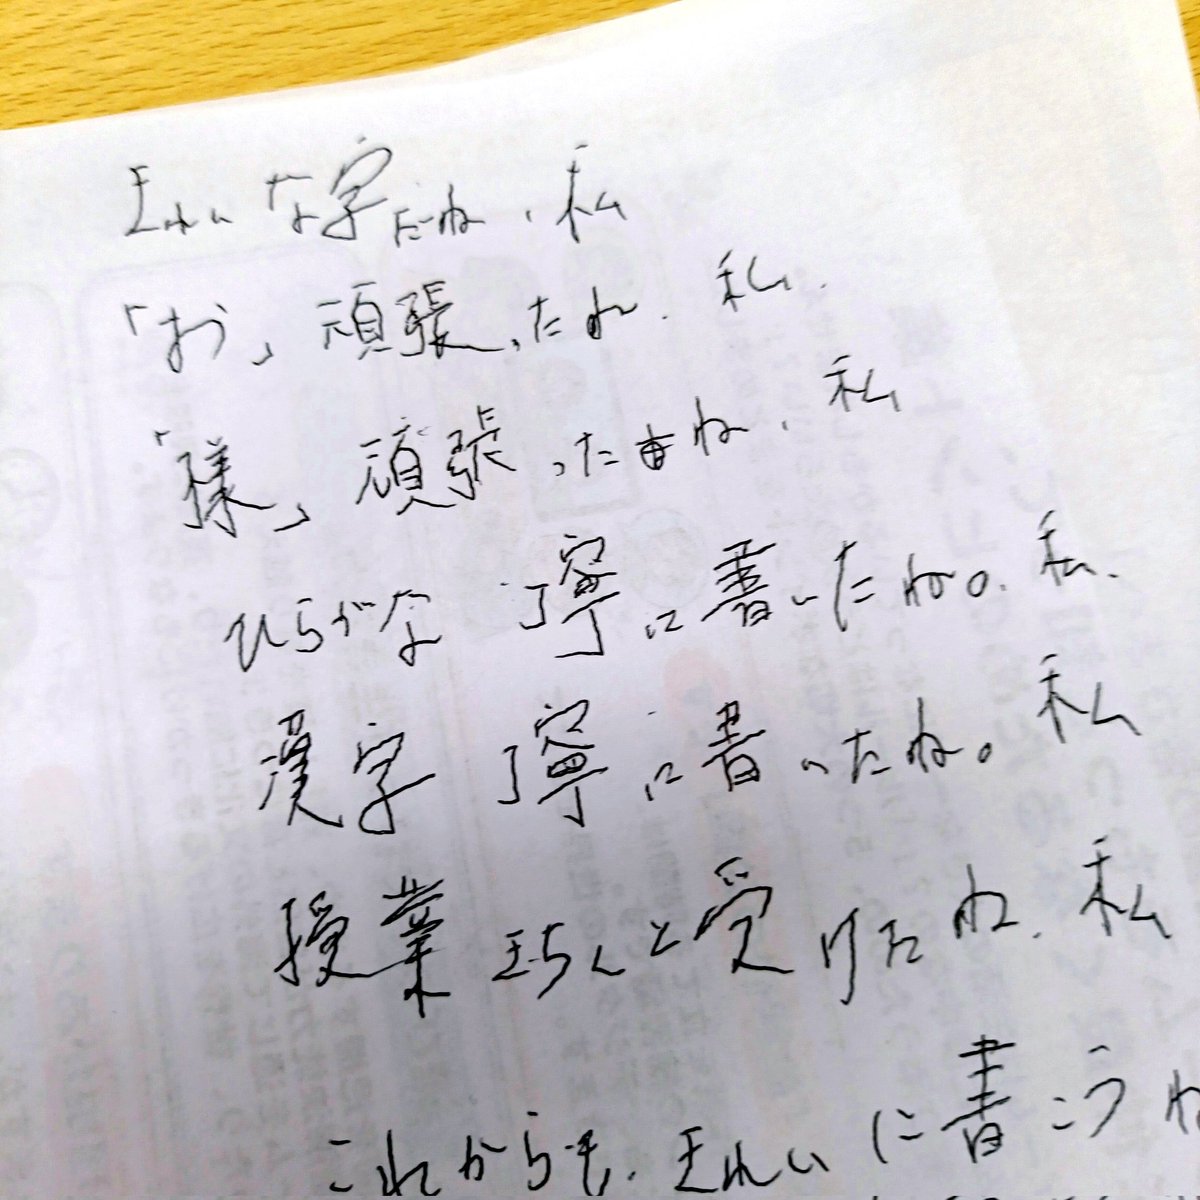 きれいな字だね、私
「お」頑張ったね、私。
「様」頑張ったね、私
ひらがな丁寧に書いたね。私、
漢字丁寧に書いたね。私
授業きちんと受けたね、私
これからも、きれいに書こうね